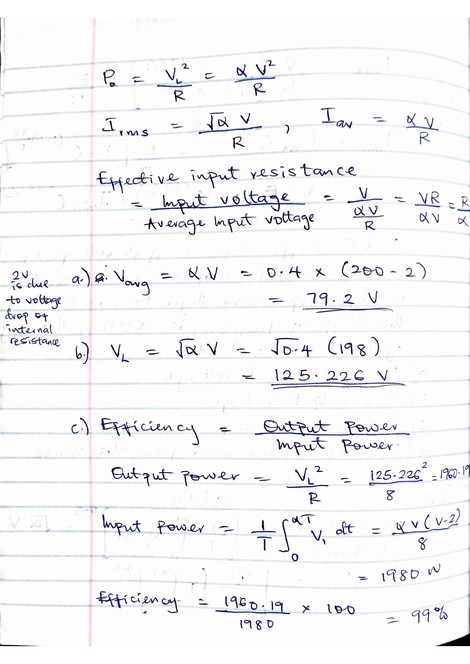 P₀ = V_L² / R = αV² / R
I_rms = √α V / R , I_av = αV / R
Effective input resistance
= Input voltage / Average Input voltage = V / (αV / R) = VR / αV = R / α
2V is due to voltage drop of internal resistance
a.) a. V_avg = αV = 0.4 × (200 - 2)
= 79.2 V
b.) V_L = √α V = √0.4 (198)
= 125.226 V
c.) Efficiency = Output Power / Input Power.
Output power = V_L² / R = 125.226² / 8 = 1960.19
Input Power = 1/T ∫₀^αT V₁ dt = αV(V-2) / 8
= 1980 W
Efficiency = 1960.19 / 1980 × 100 = 99%